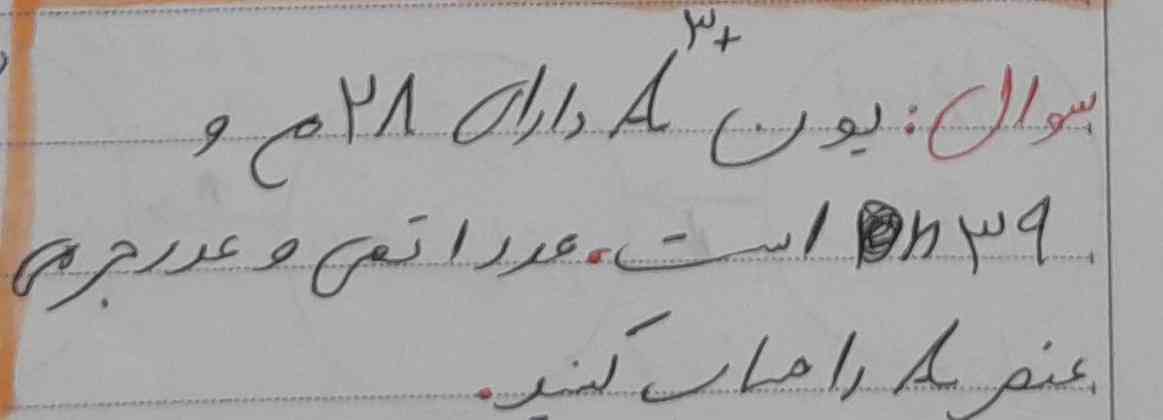 سوال: یون A³⁺ دارای ۲۸ e و
۳۹ n است. عدد اتمی و عدد جرمی
عنصر A را حساب کنید.